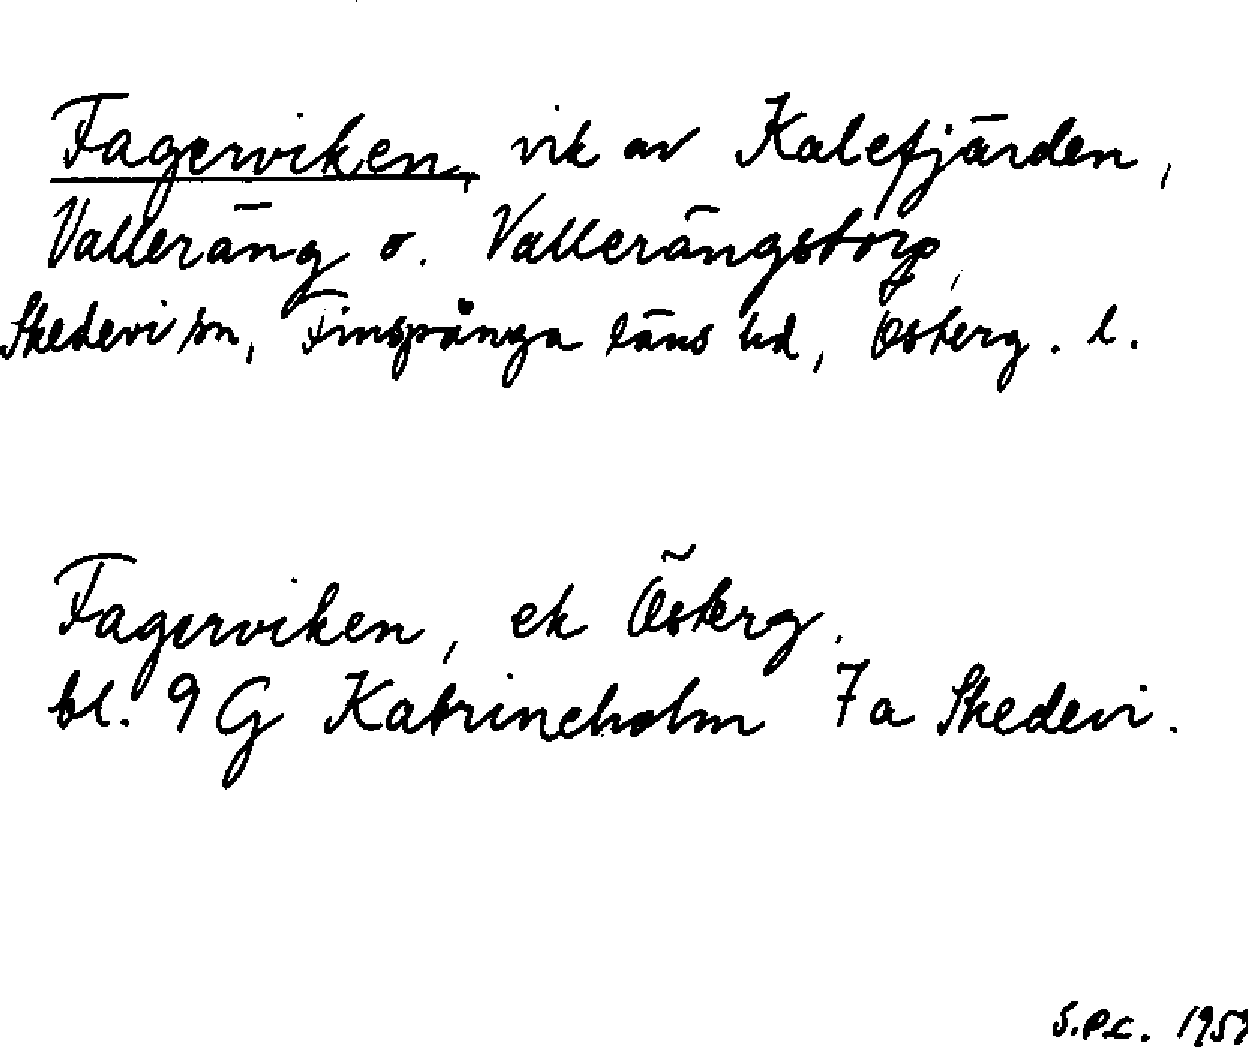 Fagerviken, vik av Kalefjärden,
Valleräng o. Vallerängstorp,
Skedevi sn, Finspånga läns hd, Österg. l.
Fagerviken, ek Österg.
bl. 9 G Katrineholm 7a Skedevi.
S.P.C. 1959